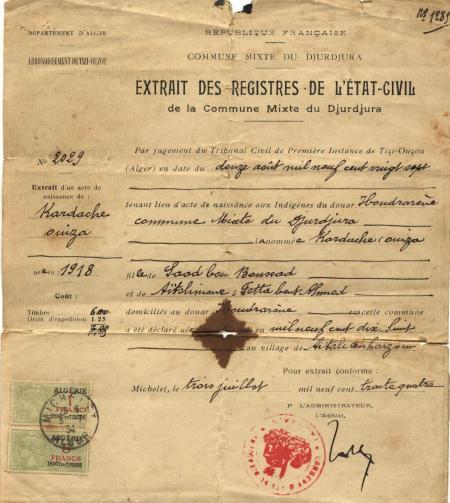 Nº 1289
DÉPARTEMENT D'ALGER
ARRONDISSEMENT DE TIZI-OUZOU
RÉPUBLIQUE FRANÇAISE
COMMUNE MIXTE DU DJURDJURA
EXTRAIT DES REGISTRES DE L'ÉTAT-CIVIL
de la Commune Mixte du Djurdjura
Nº 2029
Extrait d'un acte de
naissance de:
Kardache
ouiza
né e 1918
Coût:
Timbre
Droit d'expédition 1.25
Par jugement du Tribunal Civil de Première Instance de Tizi-Ouzou
(Alger) en date du douze août mil neuf cent vingt sept
tenant lieu d'acte de naissance aux Indigènes du douar Iboudrarène
commune Mixte du Djurdjura
Kardache ouiza
fille de Saad ben
et de Aitslimane Tetta bent Ahmed
domiciliés au douar Iboudrarène sus cette commune
a été déclaré en mil neuf cent dix huit
au village de
Pour extrait conforme:
Michelet, le trois juillet mil neuf cent trente quatre
P L'ADMINISTRATEUR,
L'Adjoint,
ALGÉRIE
FRANCS
ALGÉRIE
FRANCS